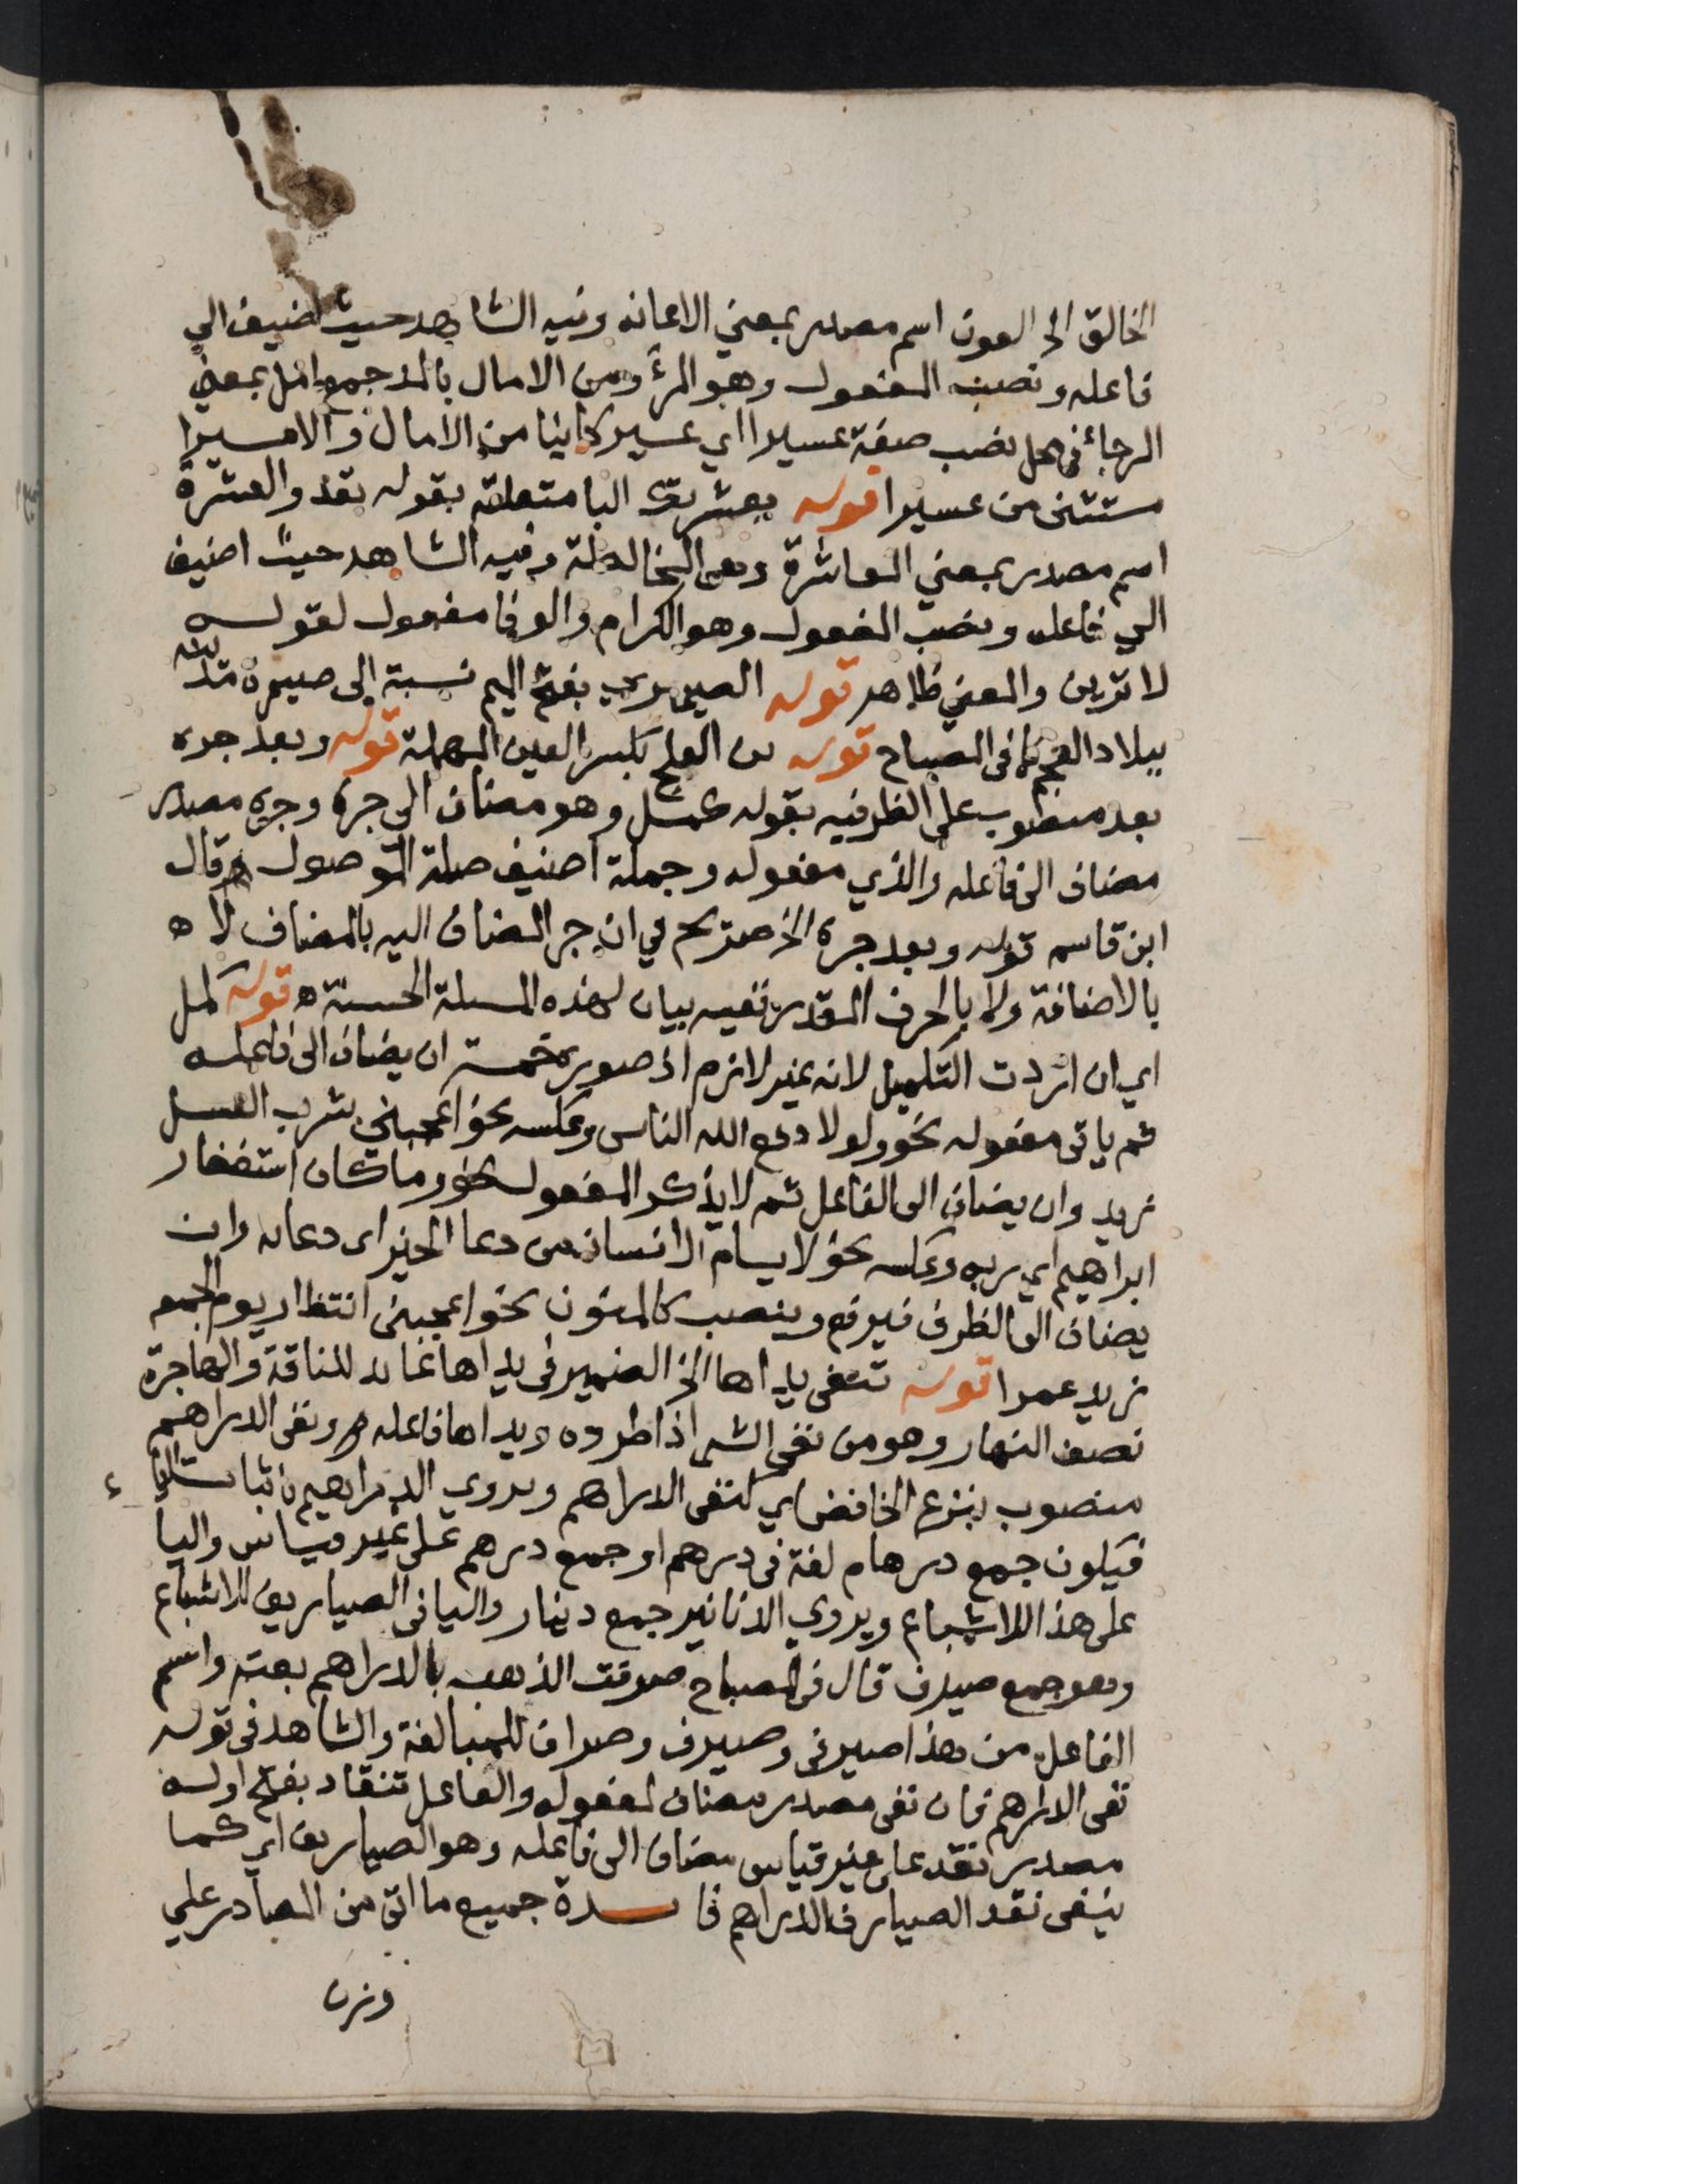 الخالق الخ العون اسم مصدر بمعني الاعانه وفيه الشاهد حيث اضيف الي
فاعله ونصب المفعول وهو المرء ومن الامال بالمد جمع امل بمعني
الرجائ في محل نصب صفة عسيرا اي عسير كاينا من الامال والا ميسرا
مستثنى من عسيرا قوله بعشرتك البا متعلقة بقوله تعد والعشرة
اسم مصدر بمعني المعاشرة وهى المخالطة وفيه الشاهد حيث اضيف
الي فاعله ونصب المفعول وهو الكرام والوفا مفعول لقوله
لا ترين والمعني ظاهر قوله الصيمري بفتح الميم نسبة إلى صيمرة بلد
ببلاد العجم كما فى المصباح قوله بن العلج بكسر العين المهملة قوله وبعد جره
بعد منصوب على الظرفيه بقوله كمل وهو مضاف الى جره وجره مصدر
مضاف الى فاعله والذي مفعوله وجملة اضيف صلة الموصول ه وقال
ابن قاسم قوله وبعد جره الخ صريح في ان جر المضاف اليه بالمضاف لا ه
بالاضافة ولا بالحرف المقدر ففيه بيان لهذه المسلة الحسنة ه قوله كمل
اي ان اردت التكميل لانه غير لازم اذ صوره خمسة ان يضاف الى فاعله
ثم ياتى مفعوله نحو ولولا دفع الله الناس وعكسه نحو اعجبني شرب العسل
زيد وان يضاف الى الفاعل ثم لا يذكر المفعول نحو وما كان استغفار
ابراهيم اي ربه وعكسه نحو لا يسام الانسان من دعا الخير اى دعائه وان
يضاف الى الظرف فيرفع وينصب كالمنون نحو اعجبنى انتظار يوم الجمعه
زيد عمرا قوله تنفى يداها الخ الضمير فى يداها عائد للناقة والهاجرة
نصف النهار وهو من نفى الشى اذا طرده ويداها فاعله ه ونفى الدراهم
منصوب بنزع الخافض اي كنفى الدراهم ويروي الدراهيم باثبات اليا
فيكون جمع درهام لغة فى درهم او جمع درهم على غير قياس واليا
على هذا للاشباع ويروي الدنانير جمع دينار واليا فى الصياريف للاشباع
وهو جمع صيرف قال فى المصباح صرفت الذهب بالدراهم بعته واسم
الفاعل من هذا صيرفى وصيرف وصراف للمبالغة والشاهد فى قوله
نفى الدراهم فان نفى مصدر مضاف لمفعوله والفاعل تنقاد بفتح اوله
مصدر نقد على غير قياس مضاف الى فاعله وهو الصياريف اي كما
ينفى نقد الصيارف الدراهم فايدة جميع ما اتى من المصادر علي
وزن